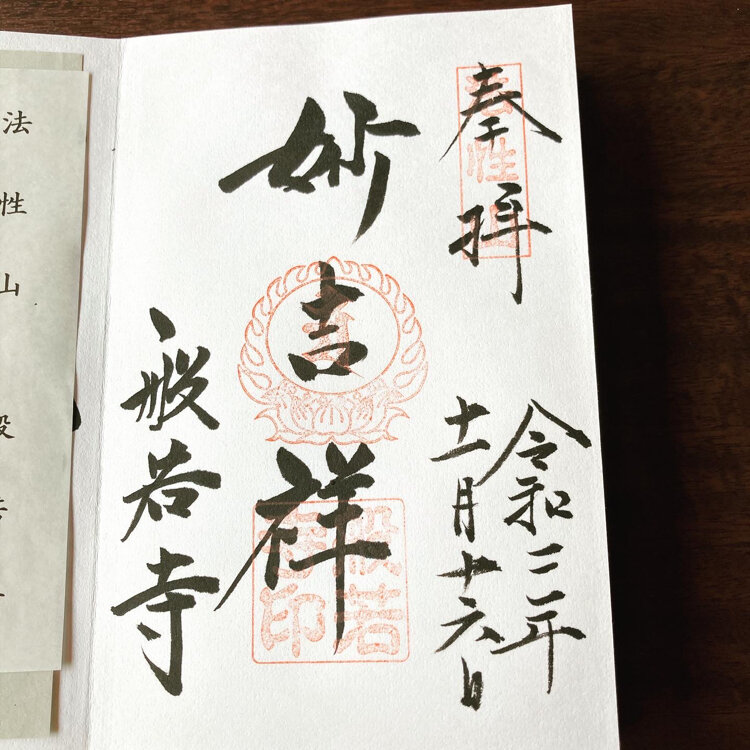 奉拝
令和三年
十一月十六日
妙吉祥
般若寺
般若
寺印
法性山
法性山